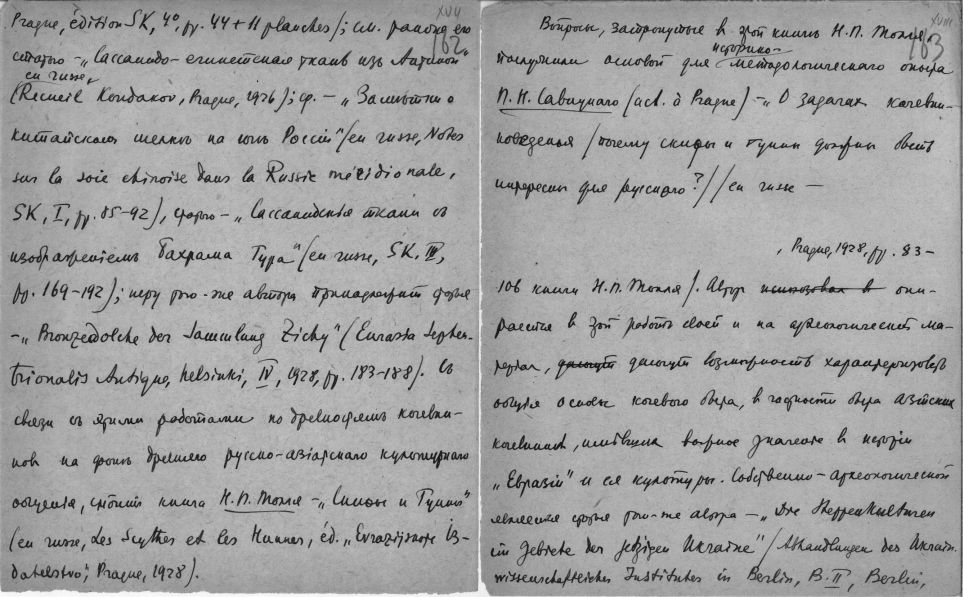 XVII
162
Prague, édition SK, 4°, pp. 44 + 11 planches/; см. раньше его
статью – „Сассанидо-египетская ткань изъ Антинои"
en russe,
(Recueil Kondakov, Prague, 1926); ср. – „Замѣтки о
китайскомъ шелкѣ на югѣ Россіи" (en russe, Notes
sur la soie chinoise dans la Russie méridionale,
SK, I, pp. 85-92), статью – „Сассанидскія ткани съ
изображеніемъ Бахрама Гура" (en russe, SK, III,
pp. 169-192); перу того-же автора принадлежитъ статья
– „Bronzedolche der Sammlung Zichy" (Eurasia Septen-
trionalis Antiqua, Helsinki, IV, 1928, pp. 183-188). Съ
связи съ этими работами по древностямъ кочевни-
ковъ на фонѣ древняго русско-азіатскаго культурнаго
общенія, стоитъ книга Н.П. Толля – „Скиѳы и Гунны"
(en russe, Les Scythes et les Hunnes, éd. „Evrazijskoje Iz-
datelstvo", Prague, 1928).
XVIII
163
Вопросы, затронутые в этой книгѣ Н.П. Толля,
историко-
послужили основой для методологическаго опыта
П.Н. Савицкаго (act. à Prague) – „О задачах кочевни-
коведенья /почему скифы и гунны должны быть
интересны для русскаго?//en russe –
, Prague, 1928, pp. 83-
106 книги Н.П. Толля/. Автор использовал в опи-
рается в этой работѣ своей и на археологический ма-
териал, дающут дающут возможность характеризовать
общія основы кочевого быта, в частности быта азіатских
кочевников, имѣвших важное значение в исторіи
„Евразіи" и ея культуры. Собственно-археологической
является статья того-же автора – „Die Steppenkulturen
im Gebiete der jetzigen Ukraine" /Abhandlungen des Ukrain.
wissenschaftlichen Institutes in Berlin, B. II, Berlin,